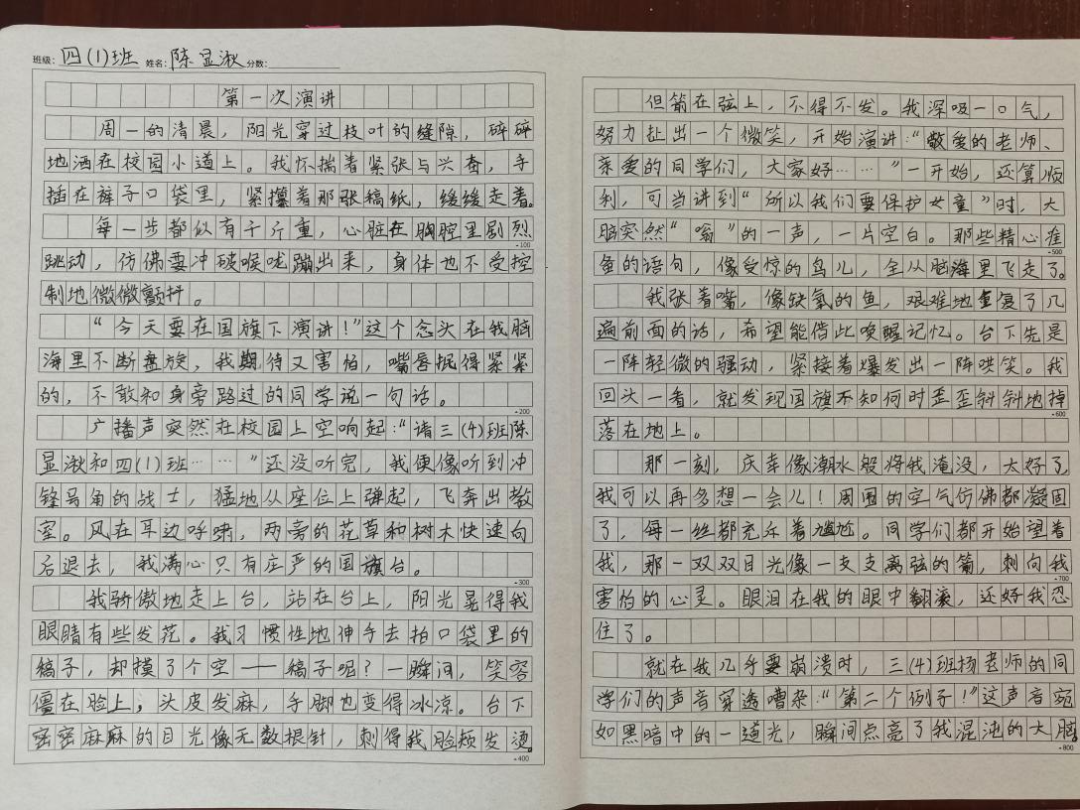 班级：四(1)班 姓名：陈显湫 分数：
第一次演讲
周一的清晨，阳光穿过枝叶的缝隙，碎碎
地洒在校园小道上。我怀揣着紧张与兴奋，手
插在裤子口袋里，紧攥着那张稿纸，缓缓走着。
每一步都似有千斤重，心脏在胸腔里剧烈
·100
跳动，仿佛要冲破喉咙蹦出来，身体也不受控
制地微微颤抖。
“今天要在国旗下演讲！”这个念头在我脑
海里不断盘旋，我期待又害怕，嘴唇抿得紧紧
的，不敢和身旁路过的同学说一句话。
·200
广播声突然在校园上空响起：“请三(4)班陈
显湫和四(1)班……”还没听完，我便像听到冲
锋号角的战士，猛地从座位上弹起，飞奔出教
室。风在耳边呼啸，两旁的花草和树木快速向
后退去，我满心只有庄严的国旗台。
·300
我骄傲地走上台，站在台上，阳光晃得我
眼睛有些发花。我习惯性地伸手去拍口袋里的
稿子，却摸了个空——稿子呢？一瞬间，笑容
僵在脸上，头皮发麻，手脚也变得冰凉。台下
密密麻麻的目光像无数根针，刺得我脸颊发烫。
·400
但箭在弦上，不得不发。我深吸一口气，
努力扯出一个微笑，开始演讲：“敬爱的老师、
亲爱的同学们，大家好……”一开始，还算顺
利，可当讲到“所以我们要保护女童”时，大
脑突然“嗡”的一声，一片空白。那些精心准
·500
备的语句，像受惊的鸟儿，全从脑海里飞走了。
我张着嘴，像缺氧的鱼，艰难地重复了几
遍前面的话，希望能借此唤醒记忆。台下先是
一阵轻微的骚动，紧接着爆发出一阵哄笑。我
回头一看，就发现国旗不知何时歪歪斜斜地掉
·600
落在地上。
那一刻，庆幸像潮水般将我淹没，太好了，
我可以再多想一会儿！周围的空气仿佛都凝固
了，每一丝都充斥着尴尬。同学们都开始望着
我，那一双双目光像一支支离弦的箭，刺向我
·700
害怕的心灵。眼泪在我的眼中翻滚，还好我忍
住了。
就在我几乎要崩溃时，三(4)班杨老师的同
学们的声音穿透嘈杂：“第二个例子！”这声音宛
如黑暗中的一道光，瞬间点亮了我混沌的大脑。
·800